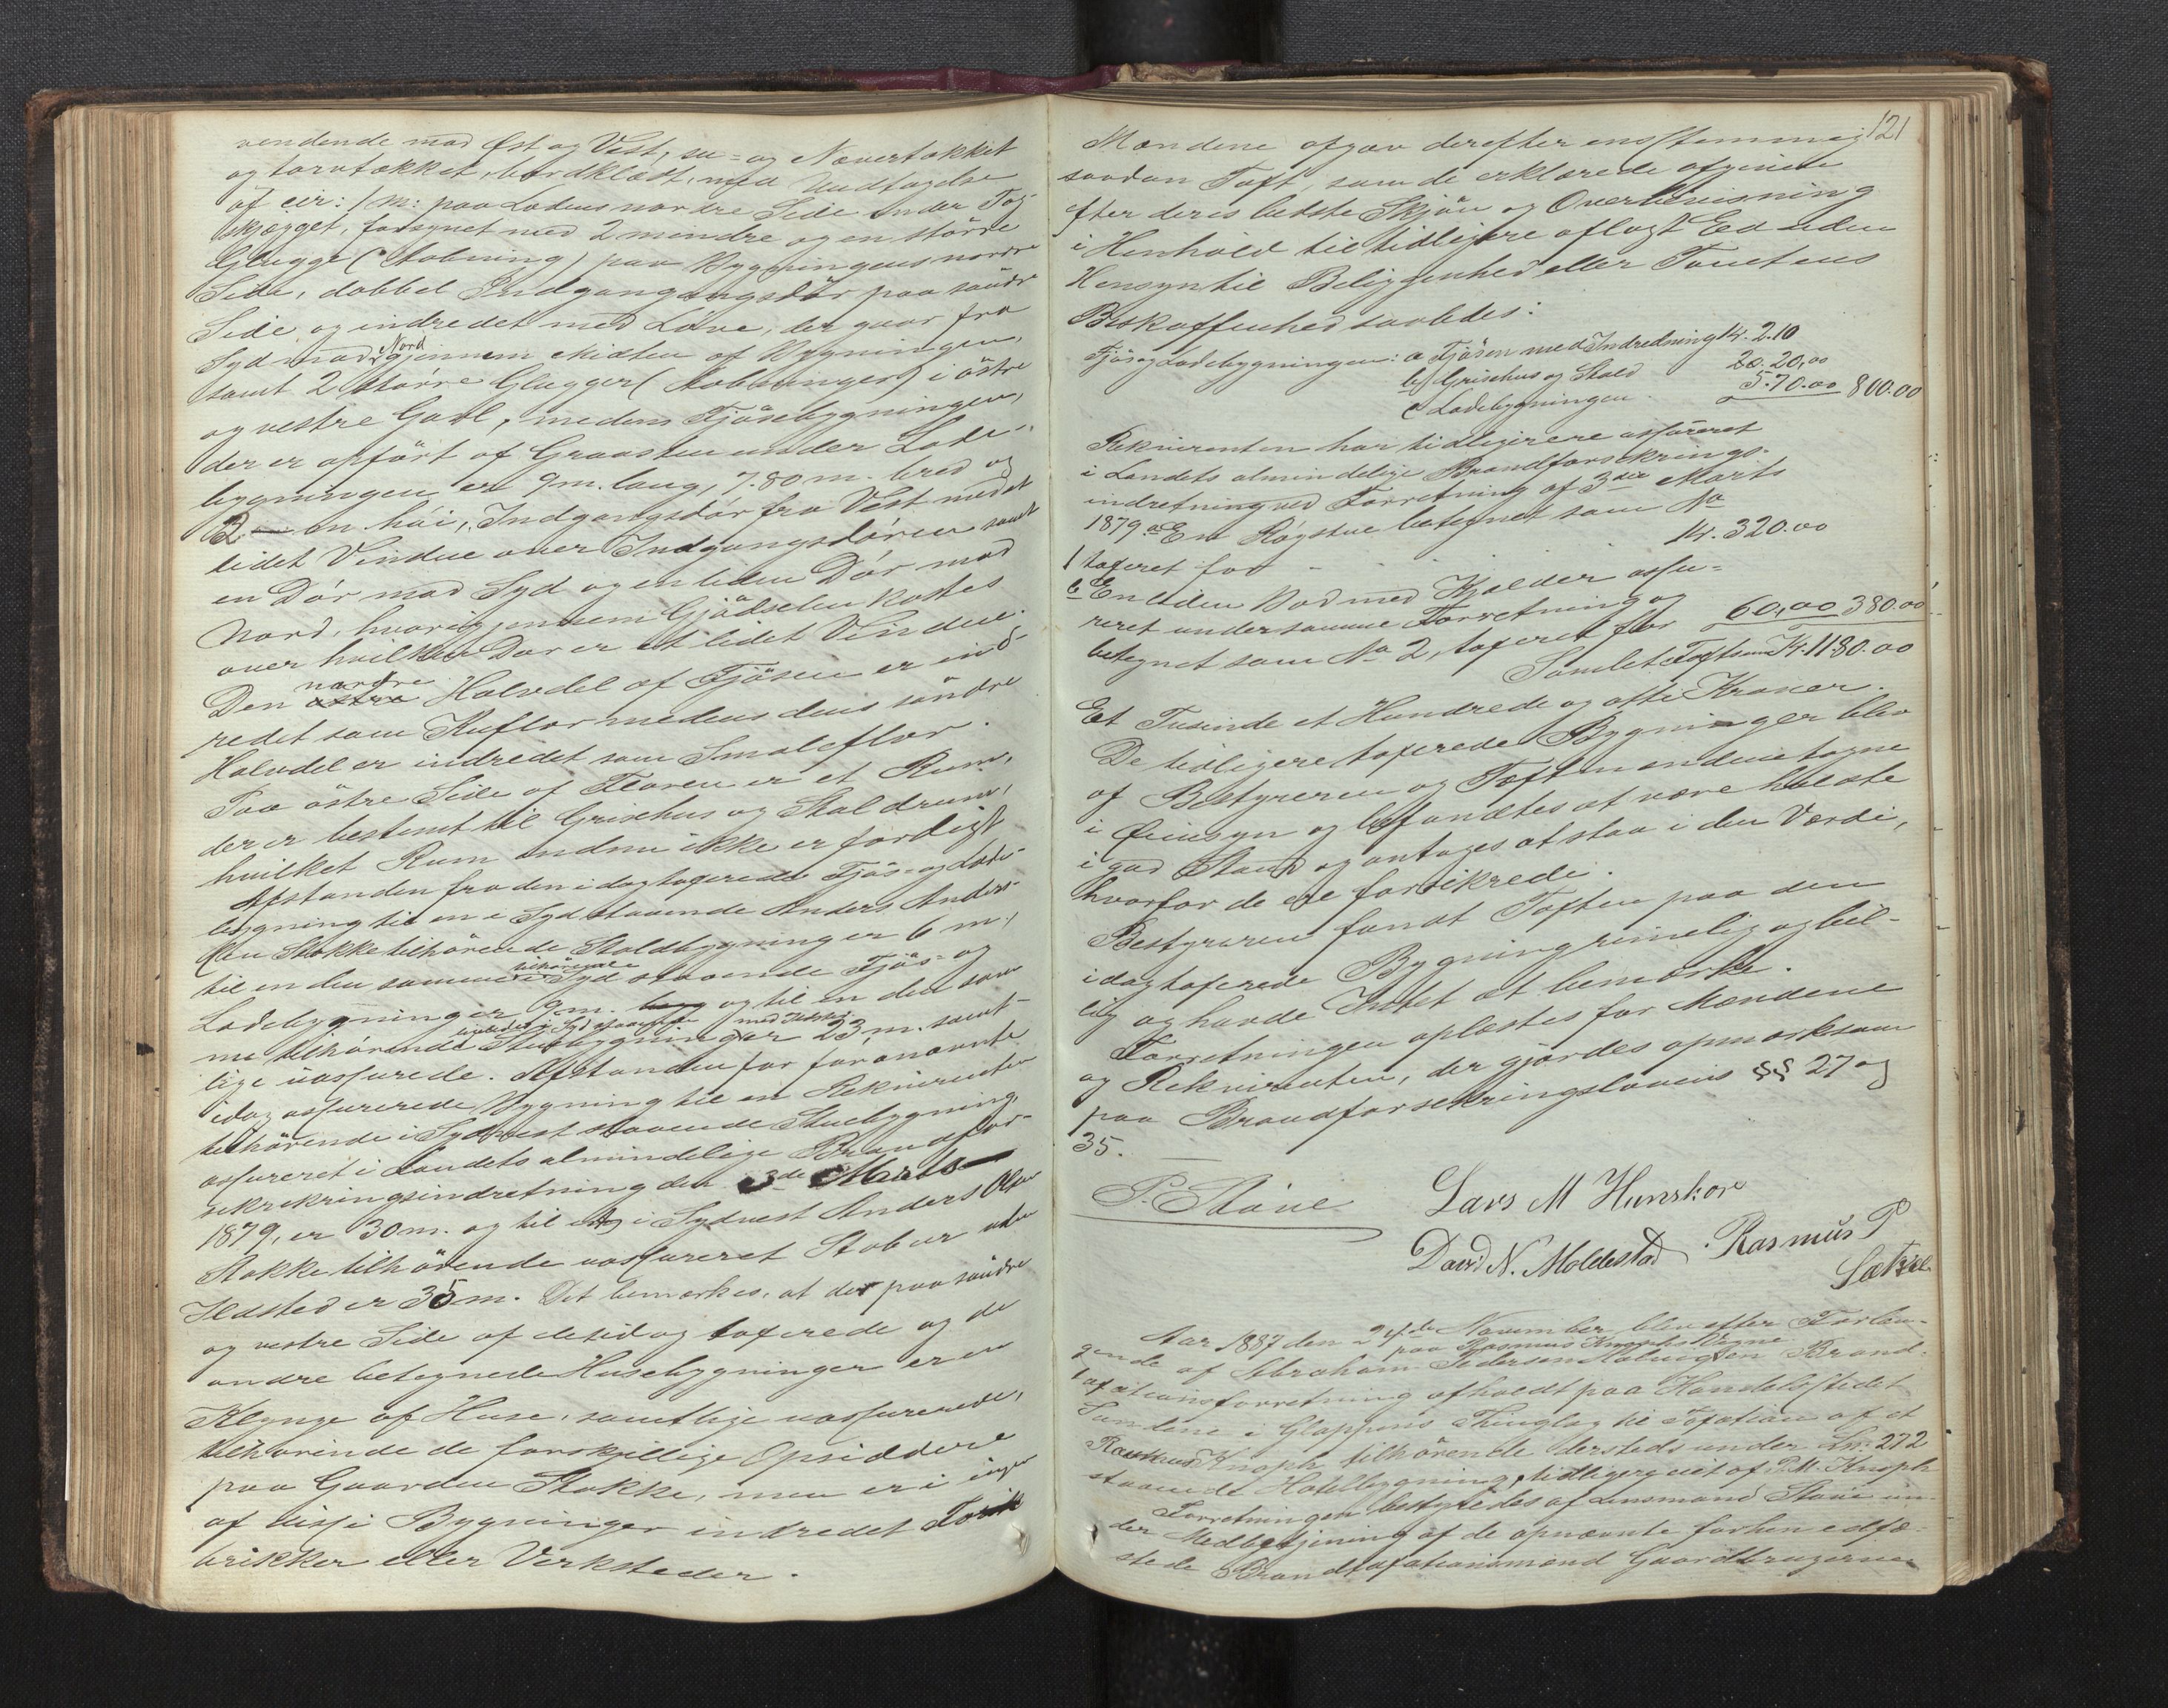 vendende mod Øst og Vest, su- og Nævertækket
og torvtækket, bordklædt, med Undtagelse
af cir: 1 m: paa Ladens nordre Side under Tag-
skjægget, forsynet med 2 mindre og en större
Glugge (Aabning) paa Bygningens nordre
Side, dobbel Indgangangsdör paa söndre
Side og indredet med Löve, der gaar fra
Syd mod Nord gjennem Midten af Bygningen,
samt 2 större Glugger (Aabninger) i östre
og vestre Gavl, medens Fjösebygningen,
der er opfört af Graasten under Lade-
bygningen er 9 m. lang, 7.80 m. bred og
2 m höi, Indgangsdör fra Vest med et
lidet Vindue over Indgangsdören samt
en Dör mod Syd og en liden Dör mod
Nord, hvorigjennem Gjödselen kastes
over hvilken Dör er et lidet Vindue.
Den östre nordre Halvdel af Fjösen er ind-
redet som Kuflor medens dens söndre
Halvdel er indredet som Smaleflor.
Paa östre Side af Floren er et Rum,
der er bestemt til Grisehus og Staldrum,
hvilket Rum endnu ikke er færdigt
Afstanden fra den idag taxerede Fjös- og Lade-
bygning til en i Syd staaende Anders Anders-
sen Stokke tilhörende Staldbygning er 6 m,
til en den samme tilhörende i Syd staaende Fjös- og
Ladebygning er 9 m. lang og til en den sam
me tilhörende ligeledes i Syd staaende Stuebygning med Ildsted er 23 m. samt-
lige uassurerede. Afstanden for forannævnte
idag assurerede Bygning til en Rekvirenten
tilhörende i Sydvest staaende Stuebygning,
assureret i Landets almindelige Brandfor-
sekrekringsindretning den 3de Marts
1879, er 30 m. og til et i Sydvest Anders Olsen
Stokke tilhörende uassureret Stabur uden
Ildsted er 35 m. Det bemærkes, at der paa söndre
og vestre Side af de idag taxerede og de
andre betegnede Husebygninger er en
Klynge af Huse, samtlige uassurerede,
tilhörende de forskjellige Opsiddere
paa Gaarden Stokke, men er i ingen
af disse Bygninger indredet Fa
brikker eller Verksteder.
121
Mændene afgav derefter enstemmig
saadan Taxt, som de erklærede afgiven
efter deres bedste Skjön og Overbevisning
i Henhold til tidligere aflagt Eed uden
Hensyn til Beliggenhed eller Tomtens
Beskaffenhed saaledes:
Fjös og Ladebygningen: a Fjösen med Indredning Kr. 2.10
b) Grisehus og Stald 20.00
c Ladebygningen 570.00 800.00
Rekvirenten har tidligere assureret
i Landets almindelige Brandforsekrings-
indretning ved Forretning af 3die Marts
1879 a En Røgstue betegnet som No
1 taxeret for - - Kr. 320.00
b En liden Bod med Kjælder assu-
reret under samme Forretning og
betegnet som No 2, taxeret for 60,00 380.00
Samlet Taxtsum Kr. 1180.00
Et Tusinde et Hundrede og otti Kroner.
De tidligere taxerede Bygninger blev
af Bestyreren og Taxtmændene tagne
i Øiensyn og befandtes at være holdte
i god Stand og antages at staa i den Værdi,
hvorfor de ere forsikrede.
Bestyreren fandt Taxten paa den
idag taxerede Bygning rimelig og bil-
lig og havde Intet at bemærke.
Forretningen oplæstes for Mændene
og Rekvirenten, der gjordes opmærksom
paa Brandforsekringslovens §§ 27 og
35.
P. Staue Lars M Hunskor
David N. Moldestad Rasmus P
Sætre
Aar 1887 den November blev efter Forlan-
gende af Abraham Pedersen paa Rasmus Knophs Vegne Brand-
taxationsforretning afholdt paa Handelsstedet
Sandene i Gloppens Thinglag til Taxation af et
Rasmus Knoph tilhörende dersteds under Ln: 272
staaende Hotelbygning, tidligere eiet af P. M. Knoph
Forretningen bestyredes af Lensmand Staue un-
der Medbetjening af de opnævnte forhen edfæ-
stede Brandtaxationsmænd Gaardbrugerne